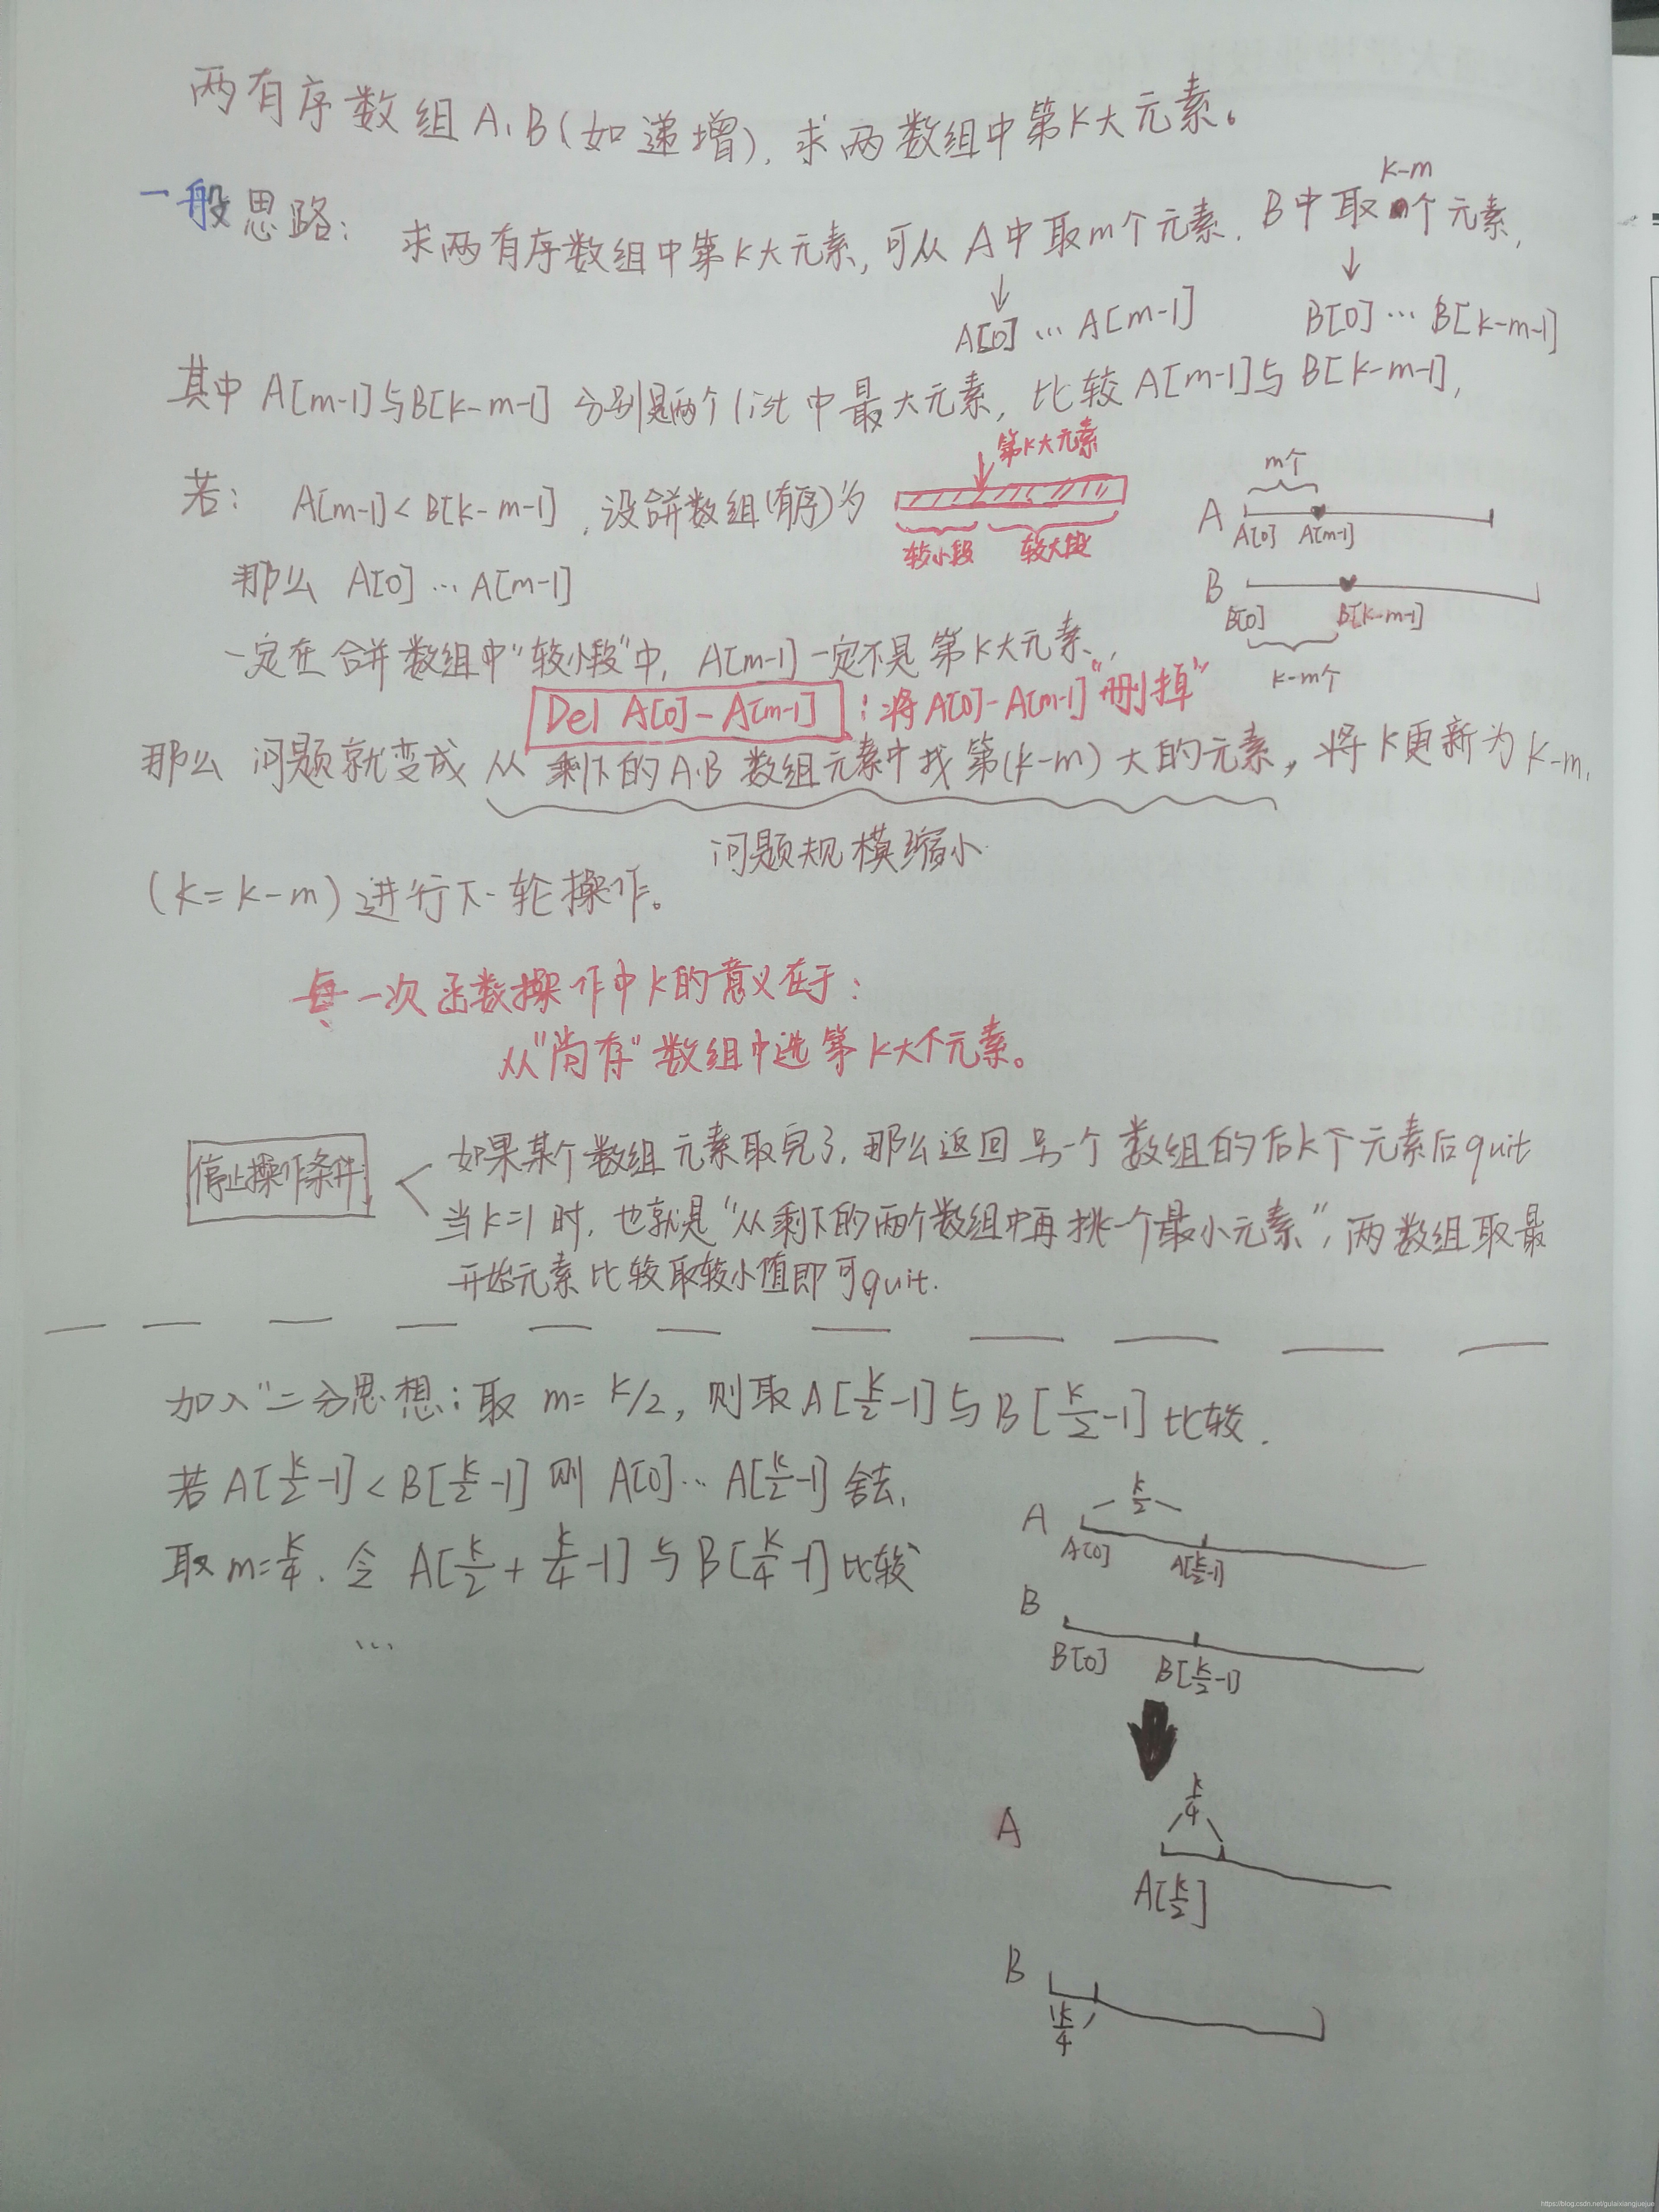 两有序数组A、B(如递增), 求两数组中第K大元素。
k-m
一般思路: 求两有序数组中第k大元素, 可从A中取m个元素, B中取个元素,
A[0] … A[m-1]
B[0] … B[k-m-1]
其中A[m-1]与B[k-m-1]分别是两个list中最大元素, 比较A[m-1]与B[k-m-1],
第k大元素
若: A[m-1]<B[k-m-1], 设合并数组(有序)为
较小段 较大段
m个
A
A[0] A[m-1]
B
B[0] B[k-m-1]
k-m个
那么 A[0] … A[m-1]
一定在合并数组中"较小段"中, A[m-1]一定不是第k大元素,
Del A[0]-A[m-1] : 将A[0]-A[m-1]"删掉"
那么 问题就变成 从剩下的A、B数组元素中找第(k-m)大的元素, 将k更新为k-m,
问题规模缩小
(k=k-m)进行下一轮操作。
每一次函数操作中k的意义在于:
从"尚存"数组中选第k大个元素。
停止操作条件:
如果某个数组元素取完了, 那么返回另一个数组的后k个元素后quit
当k=1时, 也就是"从剩下的两个数组中再挑一个最小元素", 两数组取最
开始元素比较取较小值即可quit.
加入"二分思想: 取 m=k/2, 则取A[k/2-1]与B[k/2-1]比较.
若A[k/2-1]<B[k/2-1]则 A[0]… A[k/2-1]舍去,
取m=k/4. 令 A[k/2+k/4-1]与B[k/4-1]比较
…
k/2
A
A[0] A[k/2-1]
B
B[0] B[k/2-1]
k/4
A
A[k/2]
B
k/4
https://blog.csdn.net/gutaixiangjuejue